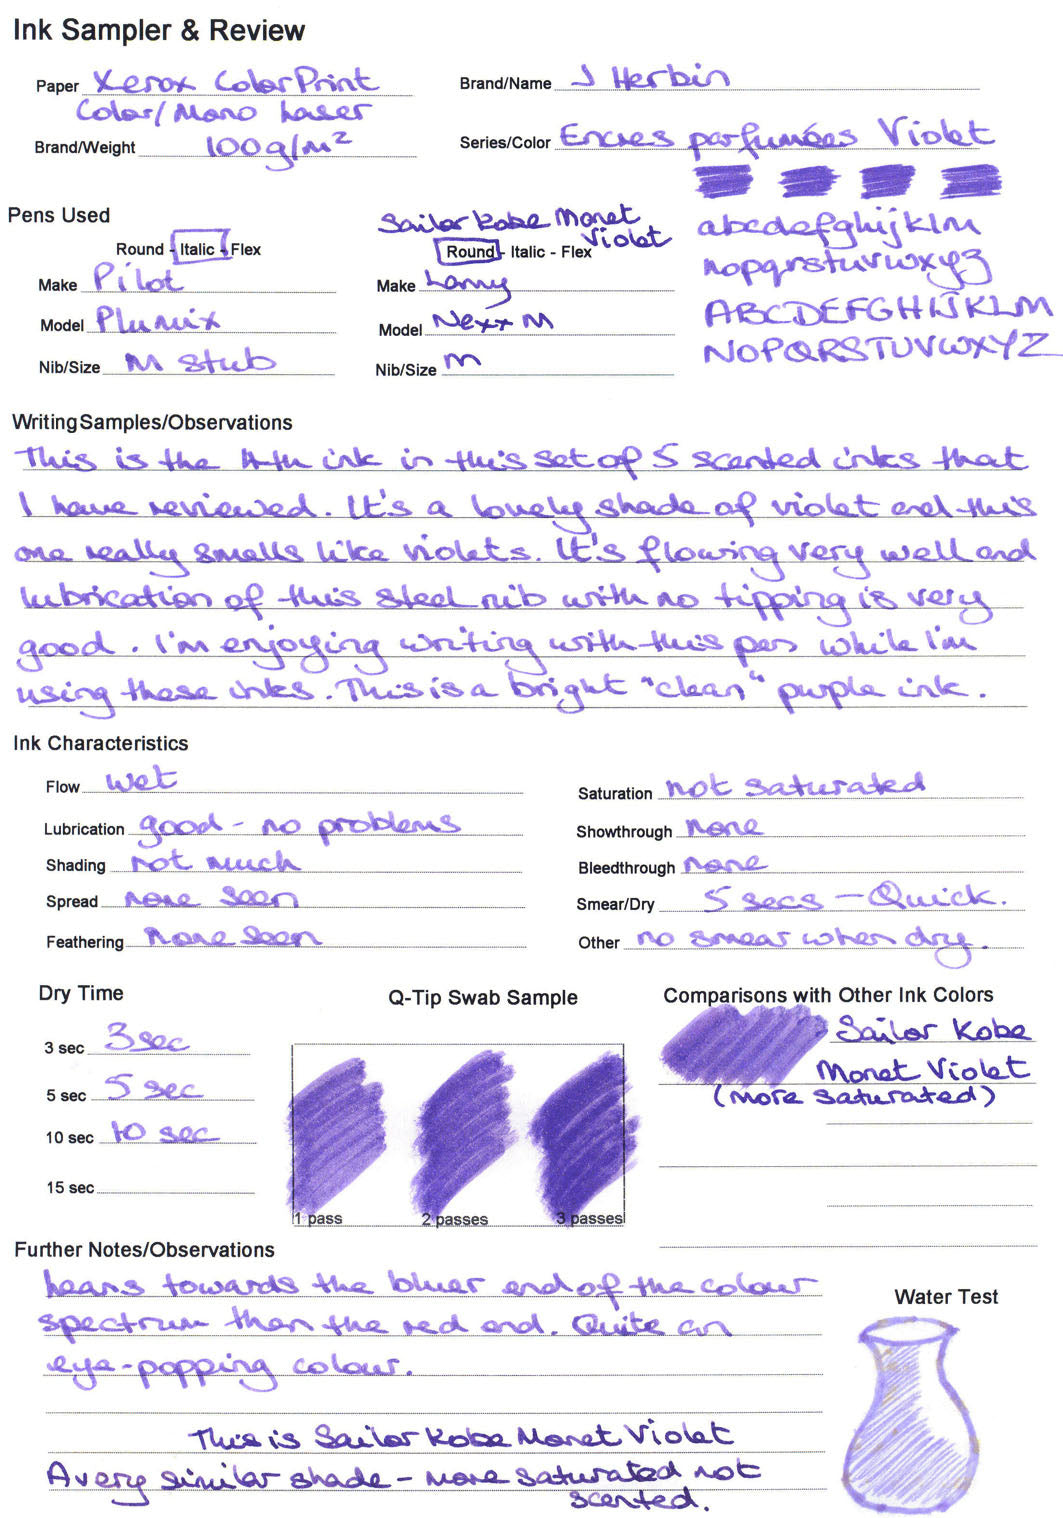 Ink Sampler & Review
Paper Xerox ColorPrint
Color/Mono Laser
Brand/Weight 100g/m²
Brand/Name J Herbin
Series/Color Encres parfumées Violet
Pens Used
Round - Italic - Flex
Make Pilot
Model Plumix
Nib/Size M stub
Sailor Kobe Monet
Violet
Round - Italic - Flex
Make Lamy
Model Nexx M
Nib/Size M
abcdefghijklm
nopqrstuvwxyz
ABCDEFGHIJKLM
NOPQRSTUVWXYZ
Writing Samples/Observations
This is the 4th ink in this set of 5 scented inks that
I have reviewed. It's a lovely shade of violet and this
one really smells like violets. It's flowing very well and
lubrication of this steel nib with no tipping is very
good. I'm enjoying writing with this pen while I'm
using these inks. This is a bright "clean" purple ink.
Ink Characteristics
Flow wet
Lubrication good - no problems
Shading not much
Spread none seen
Feathering None seen
Saturation not saturated
Showthrough none
Bleedthrough none
Smear/Dry 5 secs - Quick.
Other no smear when dry.
Dry Time
3 sec 3 sec
5 sec 5 sec
10 sec 10 sec
15 sec
Q-Tip Swab Sample
1 pass 2 passes 3 passes
Comparisons with Other Ink Colors
Sailor Kobe
Monet Violet
(more saturated)
Further Notes/Observations
Leans towards the bluer end of the colour
spectrum than the red end. Quite an
eye-popping colour.
This is Sailor Kobe Monet Violet
A very similar shade - more saturated not
scented.
Water Test